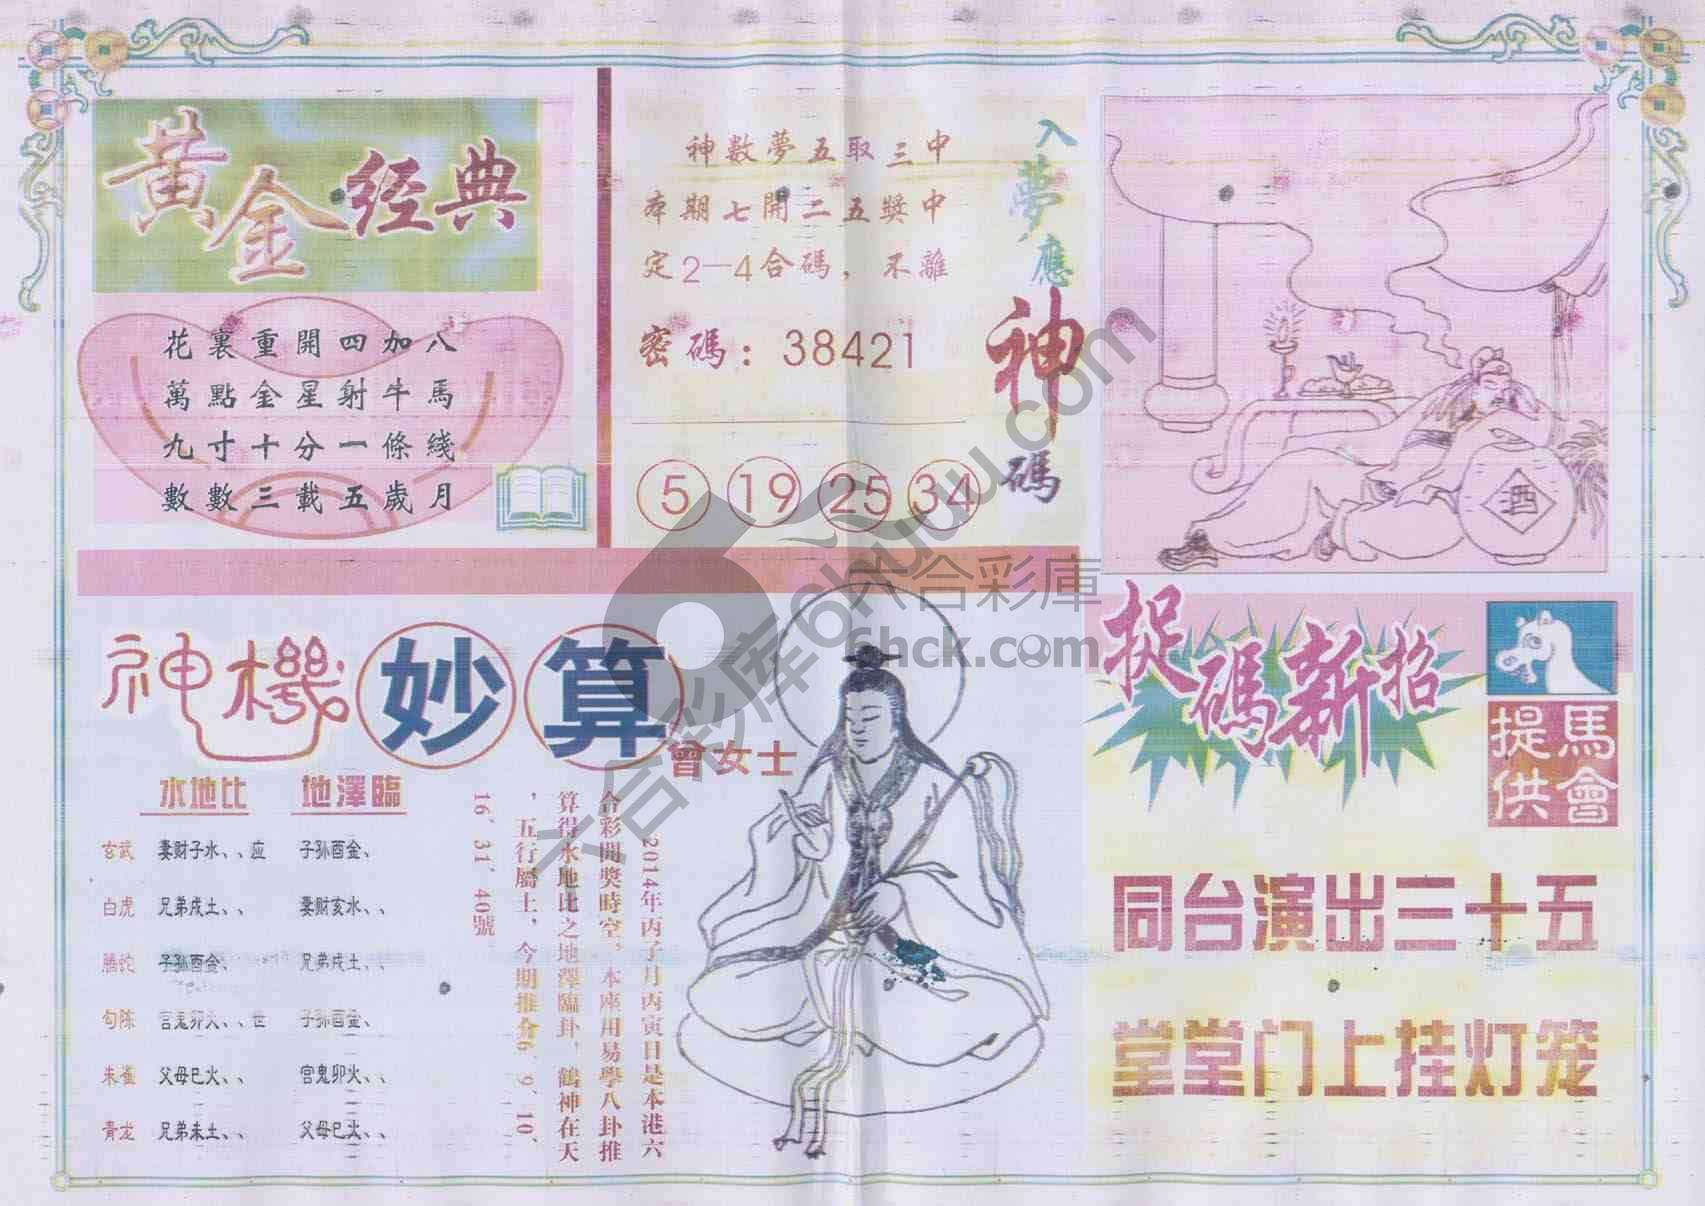 黄金经典
花裏重開四加八
萬點金星射牛馬
九寸十分一條綫
數數三載五歲月
神數夢五取三中
本期七開二五獎中
定2—4合碼，不離
密碼：38421
5 19 25 34
入夢應神碼
酒
神機妙算
曾女士
水地比 地澤臨
玄武 妻财子水、、应 子孙酉金、
白虎 兄弟戌土、、 妻财亥水、、
螣蛇 子孙酉金、 兄弟戌土、、
勾陈 官鬼卯火、、世 子孙酉金、
朱雀 父母巳火、、 官鬼卯火、、
青龙 兄弟未土、、 父母巳火、、
2014年丙子月丙寅日是本港六
合彩開獎時空，本座用易學八卦推
算得水地比之地澤臨卦，鶴神在天
，五行屬土，今期推介6、9、10、
16、31、40號。
捉碼新招
馬會
提供
同台演出三十五
堂堂门上挂灯笼
六合彩库6huw.com
六合彩庫
6hck.com